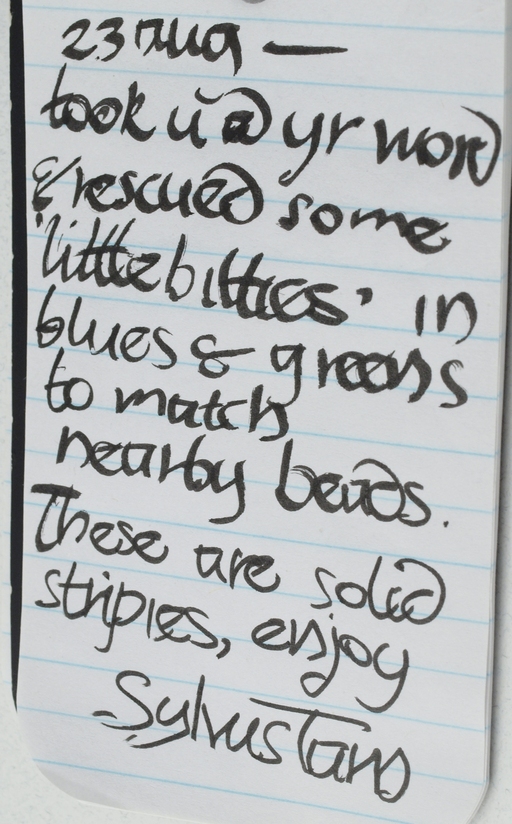 23 Aug —
took u @ yr word
& rescued some
'little bitties' in
blues & greens
to match
nearby beads.
These are solid
stripies, enjoy
- Sylvus Tarn